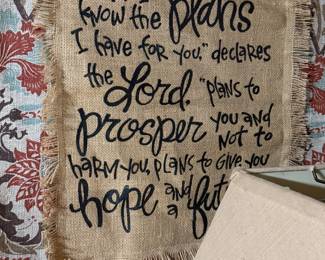 know the plans
I have for you," declares
the Lord. "plans to
prosper you and
not to
harm you, plans to give you
hope and
a fut